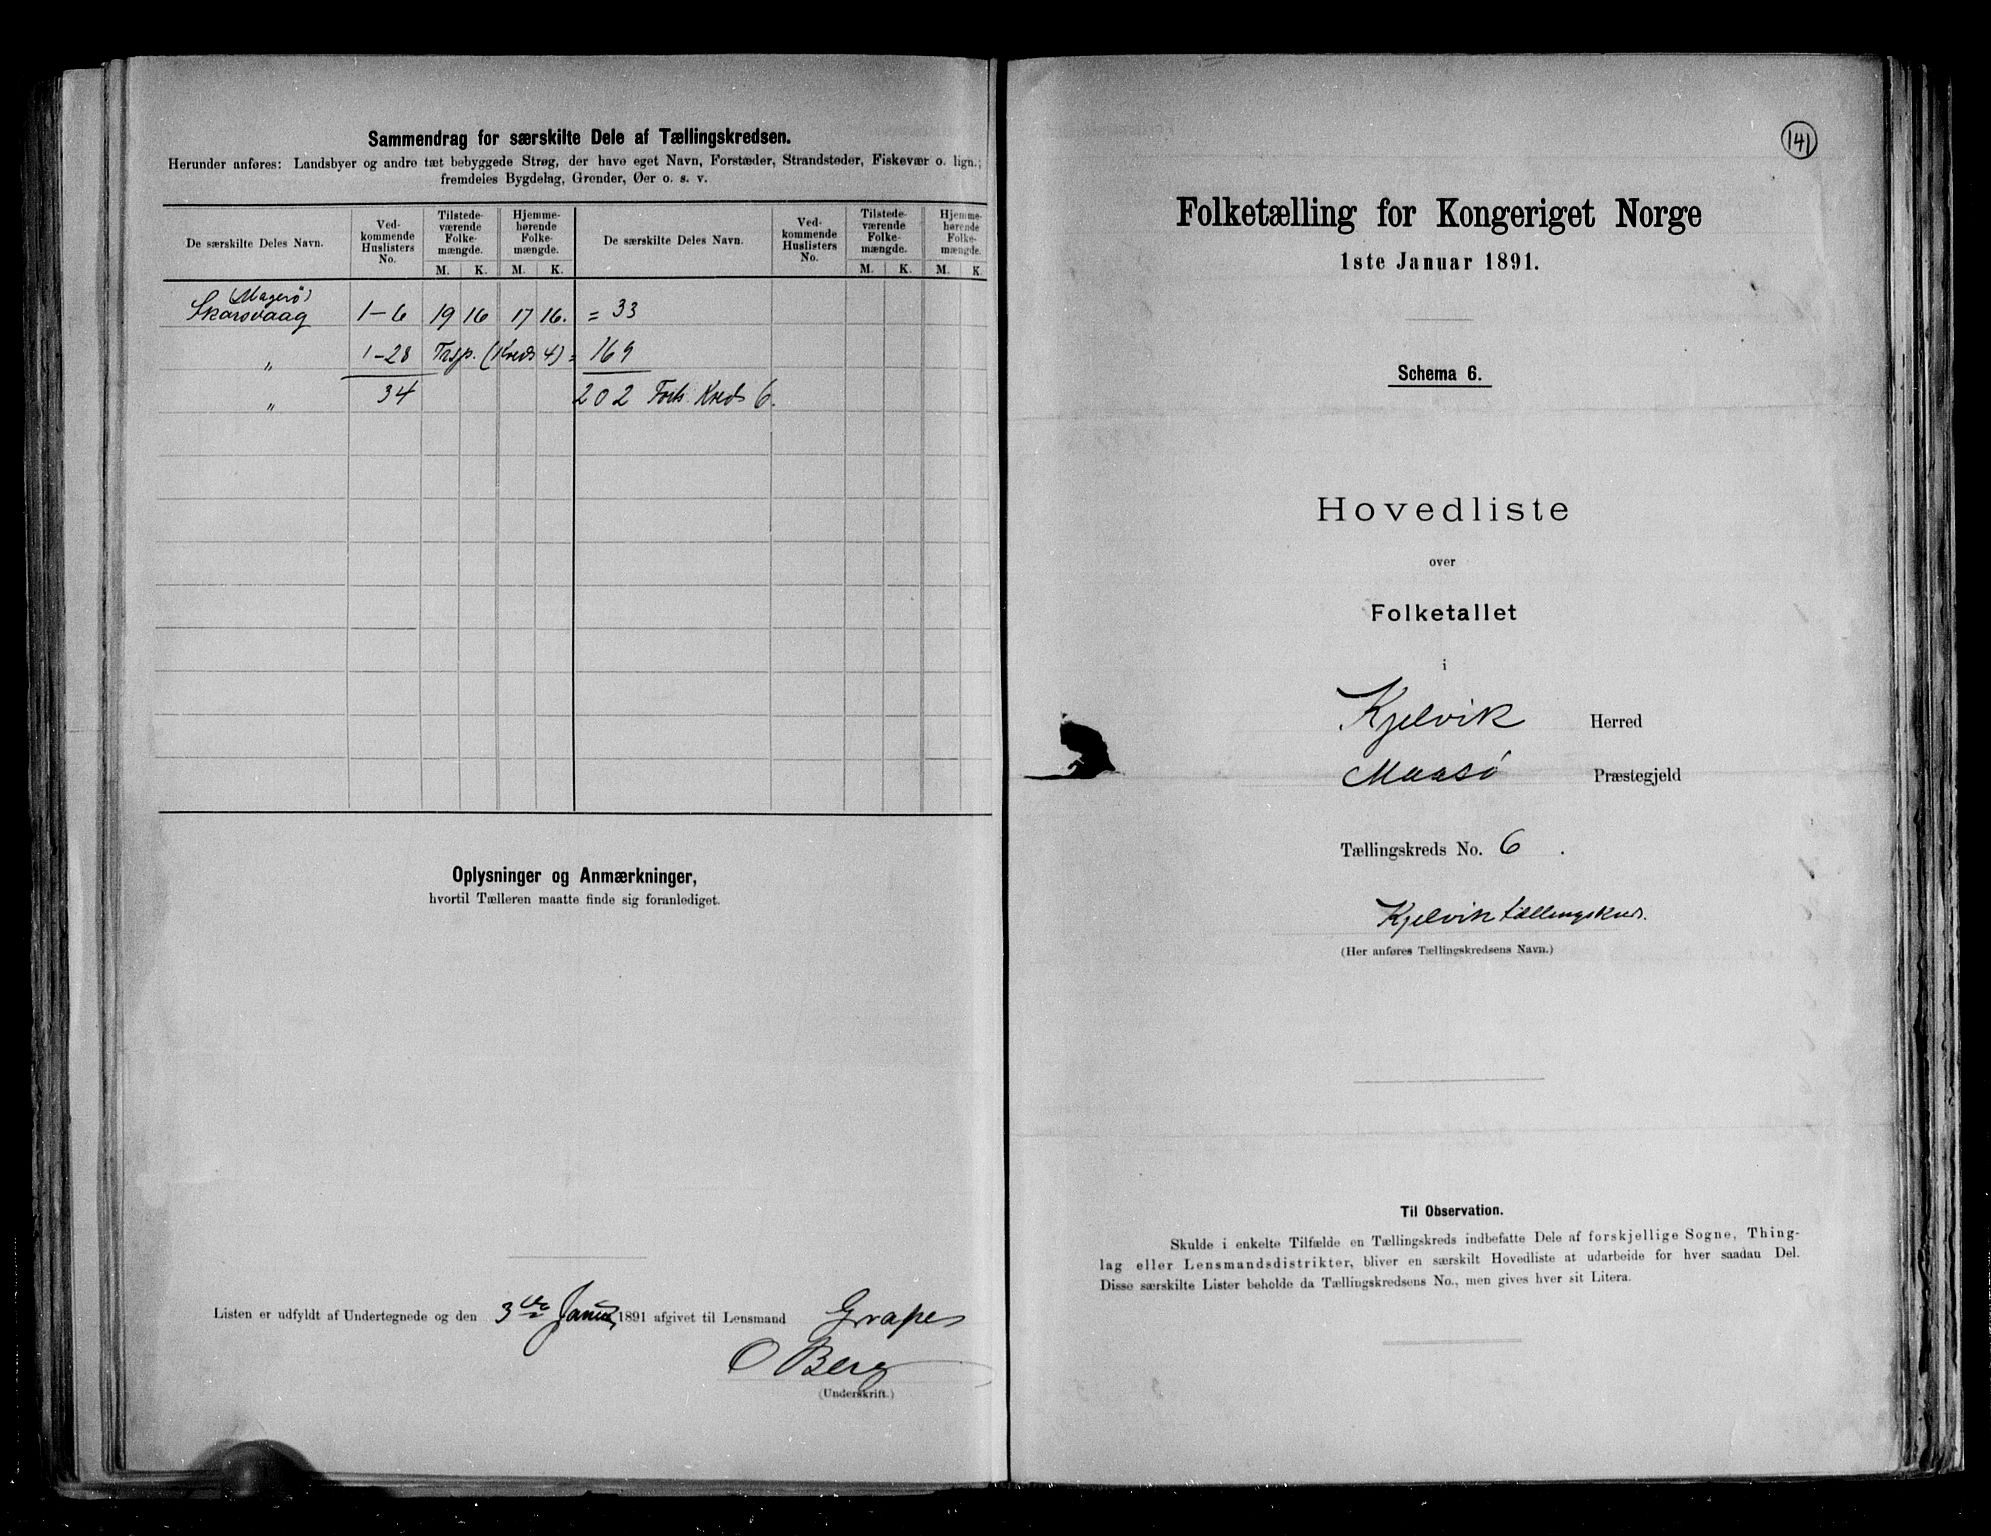 Sammendrag for særskilte Dele af Tællingskredsen.
Herunder anføres: Landsbyer og andre tæt bebyggede Strøg, der have eget Navn, Forstæder, Strandsteder, Fiskevær o. lign.;
fremdeles Bygdelag, Grender, Øer o. s. v.
De særskilte Deles Navn. Ved-kommende Huslisters No. Tilstede-værende Folke-mængde. Hjemme-hørende Folke-mængde. De særskilte Deles Navn. Ved-kommende Huslisters No. Tilstede-værende Folke-mængde. Hjemme-hørende Folke-mængde.
M. K. M. K. M. K. M. K
(Magerø)
Skarsvaag 1-6 19 16 17 16. = 33
" 1-28 Trsp. (Kreds 4) = 169
" 34 202 Forts. Kreds 6.
Oplysninger og Anmærkninger,
hvortil Tælleren maatte finde sig foranlediget.
Listen er udfyldt af Undertegnede og den 3die Januar 1891 afgivet til Lensmand Grape
O Berg
(Underskrift.)
141
Folketælling for Kongeriget Norge
1ste Januar 1891.
Schema 6.
Hovedliste
over
Folketallet
i
Kjelvik Herred
Maasø Præstegjeld
Tællingskreds No. 6.
Kjelvik tællingskreds.
(Her anføres Tællingskredsens Navn.)
Til Observation.
Skulde i enkelte Tilfælde en Tællingskreds indbefatte Dele af forskjellige Sogne, Thing-
lag eller Lensmandsdistrikter, bliver en særskilt Hovedliste at udarbeide for hver saadau Del.
Disse særskilte Lister beholde da Tællingskredsens No., men gives hver sit Litera.